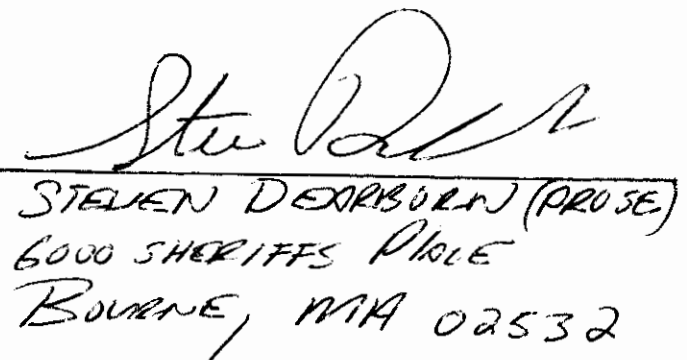 STEVEN DEARBORN (PROSE)
6000 SHERIFFS PLACE
BOURNE, MA 02532